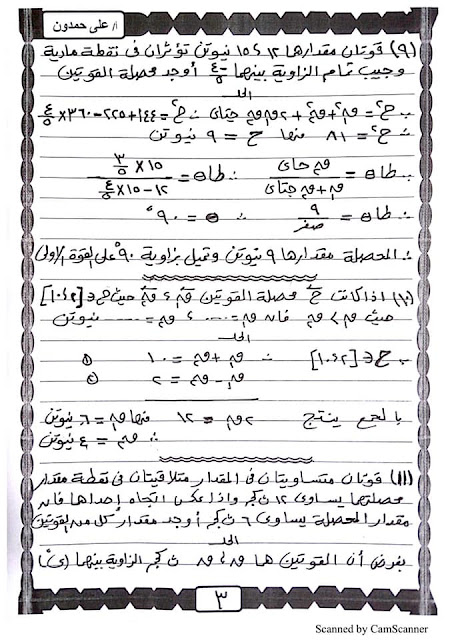 أ/ على حمدون
(٩) قوتان مقدارها ١٢ ، ١٥ نيوتن تؤثران فى نقطة مادية
وجيب تمام الزاوية بينهما -٤/٥ أوجد محصلة القوتين
الحل
∵ ح² = ق١² + ق٢² + ٢ق١ق٢ جتاى ∴ ح² = ١٤٤ + ٢٢٥ - ٣٦٠ × ٤/٥
∴ ح² = ٨١ منها ح = ٩ نيوتن
∵ طاهـ = ق٢ حاى / ق١ + ق٢ جتاى ∴ طاهـ = ١٥ × ٣/٥ / ١٢ - ١٥ × ٤/٥
∴ طاهـ = ٩/صفر ∴ هـ = ٩٠°
∴ المحصلة مقدارها ٩ نيوتن وتميل بزاوية ٩٠° على القوة الاولى
(١٠) اذا كانت ح محصلة القوتين ق١ ، ق٢ حيث ح ∈ [٢ ، ١٠]
حيث ق١ > ق٢ فان ق١ = .... ، ق٢ = .... نيوتن
الحل
∵ ح ∈ [٢ ، ١٠] ∴ ق١ + ق٢ = ١٠ ①
ق١ - ق٢ = ٢ ②
بالجمع ينتج ٢ق١ = ١٢ منها ق١ = ٦ نيوتن
∴ ق٢ = ٤ نيوتن
(١١) قوتان متساويتان فى المقدار متلاقيتان فى نقطة مقدار
محصلتها يساوى ١٢ ث كجم واذا عكس اتجاه إحداها فان
مقدار المحصلة يساوى ٦ ث كجم أوجد مقدار كل من القوتين
الحل
بفرض أن القوتين هما ق ، ق ث كجم الزاوية بينها (ى°)
٣
Scanned by CamScanner